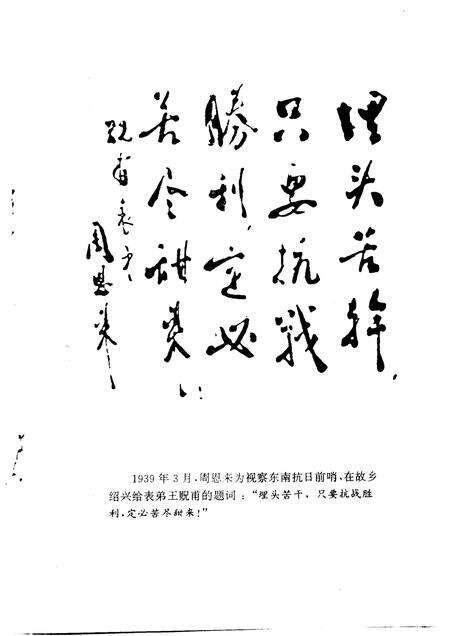 埋头苦幹,
只要抗戰
勝利,定必
苦尽甜来!
贶甫表弟
周恩来
1939年3月,周恩来为视察东南抗日前哨,在故乡
绍兴给表弟王贶甫的题词:“埋头苦干,只要抗战胜
利,定必苦尽甜来!”